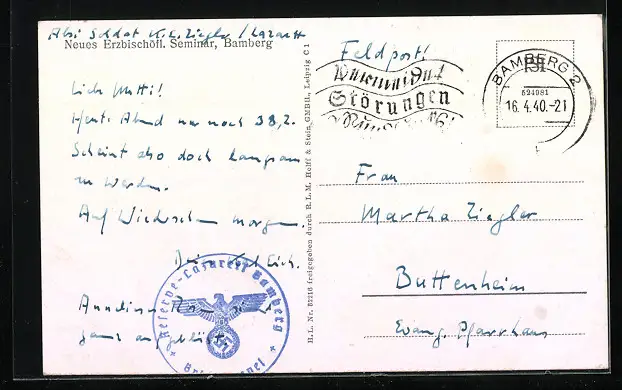 Abs: Soldat K. E. Ziegler / Lazarett
Neues Erzbischöfl. Seminar, Bamberg
Lieb Mutti!
Heute Abend nur noch 38,2.
Scheint also doch langsam
zu werden.
Auf Wiedersehen morgen.
Dein
ganz
Reserve-Lazarett Bamberg
H.L. Nr. 52216 freigegeben durch R.L.M. Helff & Stein GMBH., Leipzig C1
Feldpost!
Störungen
BAMBERG 2
16.4.40.-21
Frau
Martha Ziegler
Buttenheim
Evang. Pfarrhaus